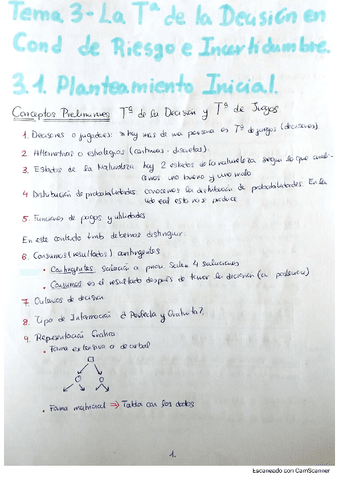 Tema 3 - La Tª de la Decisión en
Cond de Riesgo e Incertidumbre.
3.1. Planteamiento Inicial.
Conceptos Preliminares Tª de la Decisión y Tª de Juegos
1. Decisores o jugadores: si hay más de una persona es Tª de juegos (decisores)
2. Alternativas o estrategias (continuas - discretas).
3. Estados de la Naturaleza: hay 2 estados de la naturaleza según lo que
uno bueno y uno malo
4 Distribución de probabilidades: conocemos la distribución de probabilidades. En la
vida real esto no se produce
5. Funciones de pagos y utilidades
En este contexto tmb debemos distinguir:
6. Consumos (resultados) contingentes
• Contingentes: solución a priori. Salen 4 soluciones
• Consumos es el resultado después de tomar la decisión (a posteriori)
7. Criterios de decisión
8. Tipo de Información ¿Perfecta y Gratuita?
9. Representación Gráfica:
• Forma extensiva o de árbol
• Forma matricial ⇒ Tabla con los datos
1.
Escaneado con CamScanner